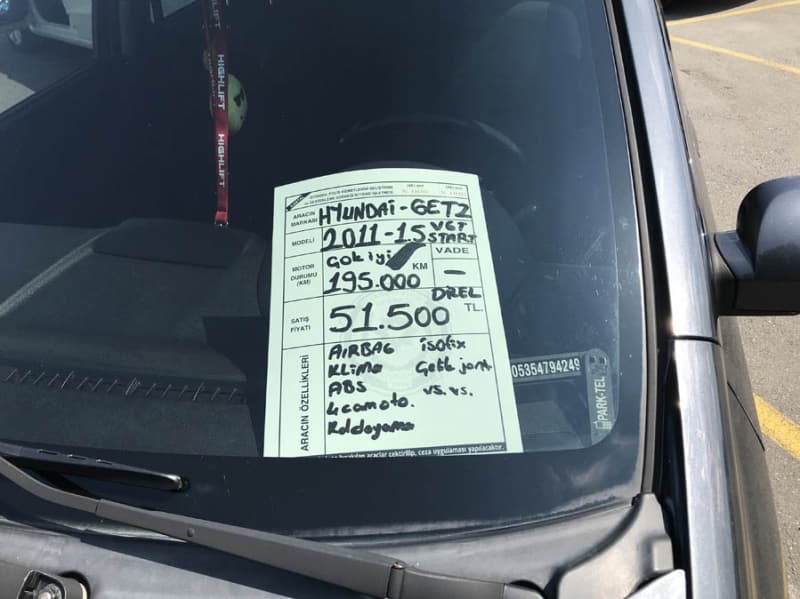 HIGHLIFT
HIGHLIFT
ARACIN MARKASI HYUNDAİ-GETZ
MODELİ 2011-1.5 VGT START
MOTOR DURUMU (KM) Çok iyi 195.000 KM
VADE
-
SATIŞ FİYATI 51.500 TL.
ARACIN ÖZELLİKLERİ
AIRBAG isofix
Klima Getk jant
ABS vs.vs.
4 camoto.
Koldayama
araçlar çektirilip, ceza uygulaması yapılacaktır.
05354794249
PARK-TEL